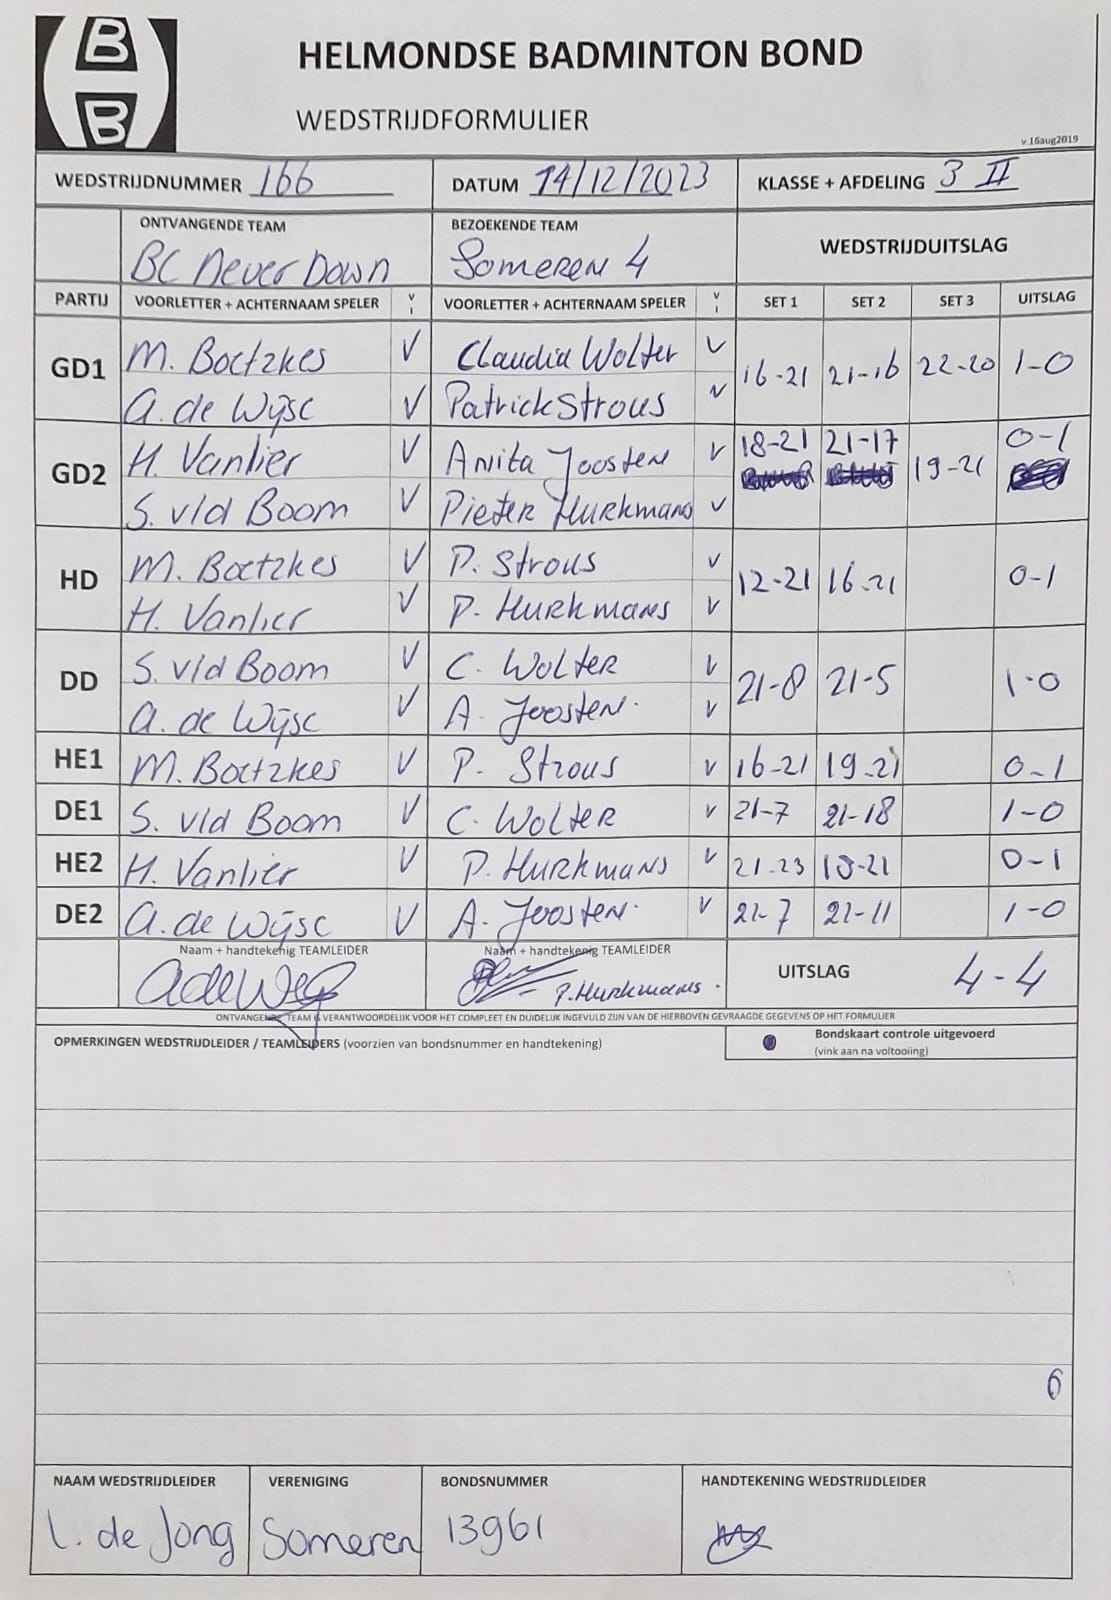 B
B
HELMONDSE BADMINTON BOND
WEDSTRIJDFORMULIER
v.16aug2019
WEDSTRIJDNUMMER 166 DATUM 14/12/2023 KLASSE + AFDELING 3 II
ONTVANGENDE TEAM BEZOEKENDE TEAM WEDSTRIJDUITSLAG
BC Never Down Someren 4
PARTIJ VOORLETTER + ACHTERNAAM SPELER V VOORLETTER + ACHTERNAAM SPELER V SET 1 SET 2 SET 3 UITSLAG
GD1 M. Boetzkes V Claudia Wolter V 16-21 21-16 22-20 1-0
A. de Wijse V Patrick Strous V
GD2 H. Vanlier V Anita Joosten V 18-21 21-17 19-21 0-1
S. v/d Boom V Pieter Hurkmans V
HD M. Boetzkes V P. Strous V 12-21 16-21 0-1
H. Vanlier V P. Hurkmans V
DD S. v/d Boom V C. Wolter V 21-8 21-5 1-0
A. de Wijse V A. Joosten. V
HE1 M. Boetzkes V P. Strous V 16-21 19-21 0-1
DE1 S. v/d Boom V C. Wolter V 21-7 21-18 1-0
HE2 H. Vanlier V P. Hurkmans V 21-23 18-21 0-1
DE2 A. de Wijse V A. Joosten. V 21-7 21-11 1-0
Naam + handtekenig TEAMLEIDER Naam + handtekenig TEAMLEIDER UITSLAG 4-4
P. Hurkmans.
ONTVANGENDE TEAM IS VERANTWOORDELIJK VOOR HET COMPLEET EN DUIDELIJK INGEVULD ZIJN VAN DE HIERBOVEN GEVRAAGDE GEGEVENS OP HET FORMULIER
OPMERKINGEN WEDSTRIJDLEIDER / TEAMLEIDERS (voorzien van bondsnummer en handtekening) Bondskaart controle uitgevoerd
(vink aan na voltooiing)
6
NAAM WEDSTRIJDLEIDER VERENIGING BONDSNUMMER HANDTEKENING WEDSTRIJDLEIDER
L. de Jong Someren 13961